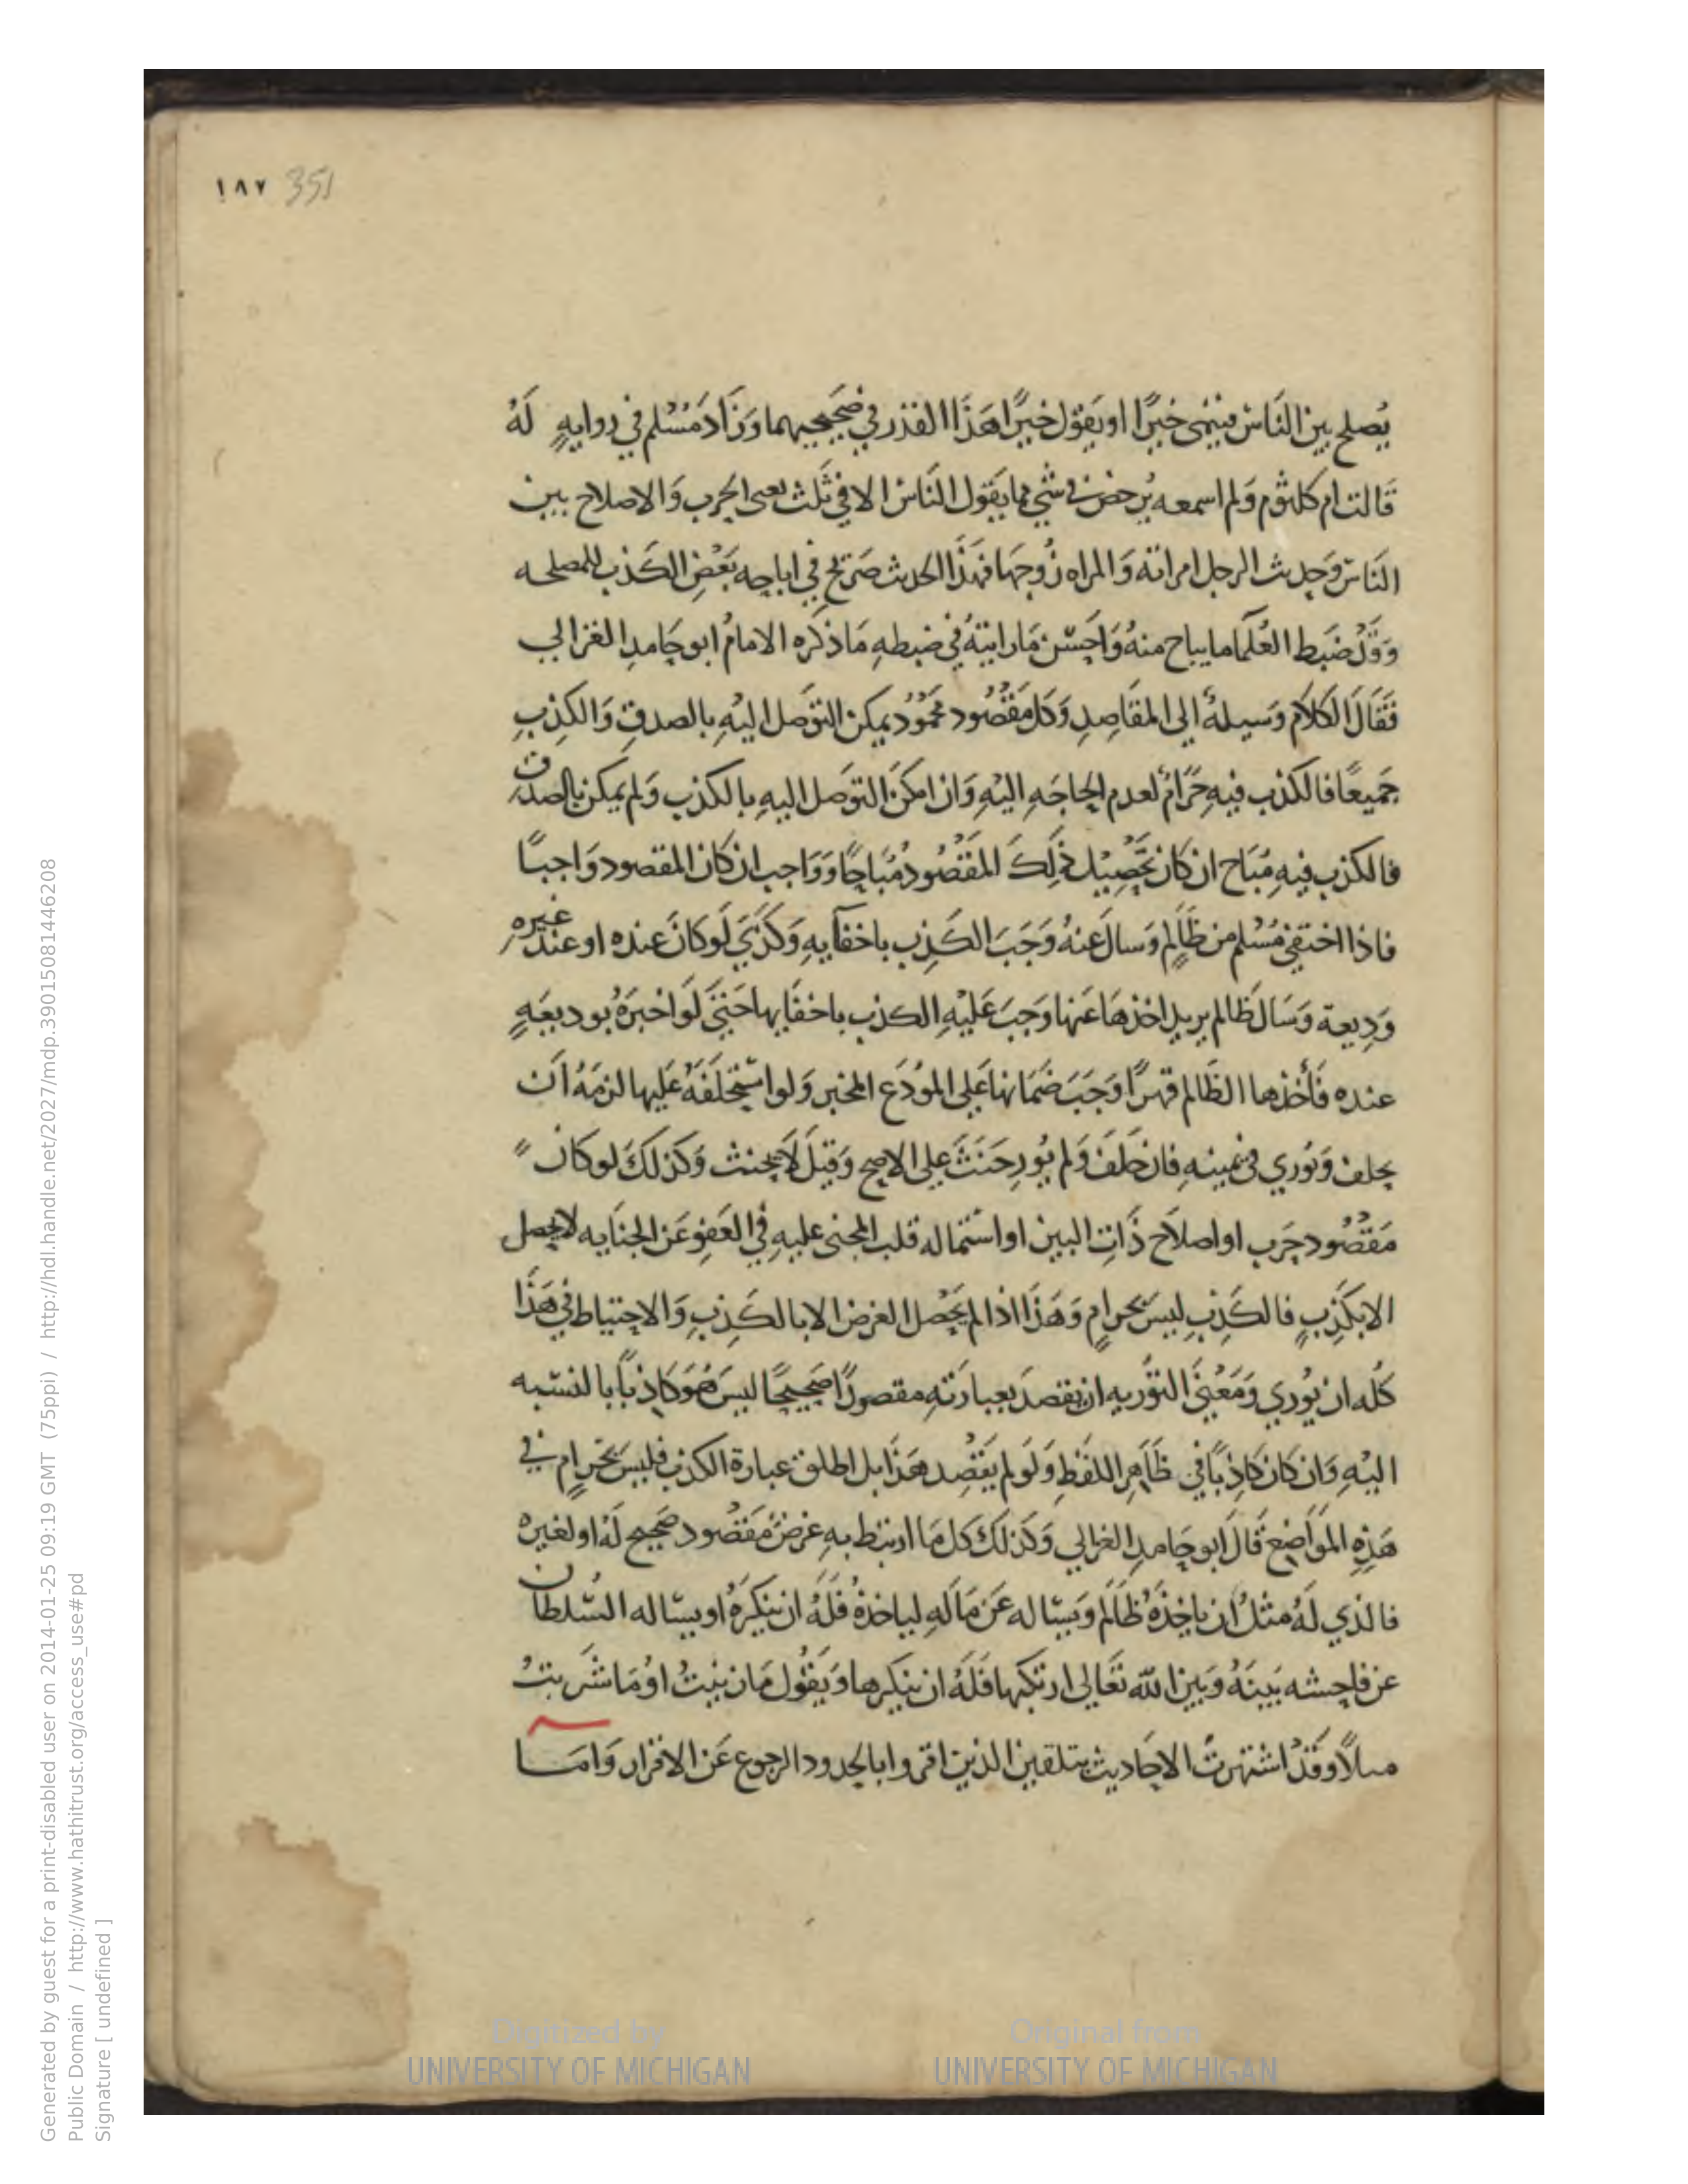 ١٨٧ 351
يُصلح بين النَاس فينمى خيرًا او يَقول خيرًا هَذَا القدر في صَحيحيهما وَزَادَ مُسْلم في روايةٍ لَهُ
قَالت ام كلثوم وَلم اسمعه يُرخص في شي مما يَقول النَاس الا في ثَلث يعنى الحرب وَالاصلاح بين
النَاس وَحديث الرجل امراته وَالمراه زَوجهَا فهَذَا الحديث صَريح في اباحه بَعْض الكَذب للمصلحه
وَقَدْ ضَبَط العُلمَا ما يباح منهُ وَاحَسَن مَا رايتهُ في ضبطهِ مَا ذكَره الامامُ ابو حَامدِ الغزالي
فَقَالَ الكَلاَم وَسيلهُ الى المقَاصِدِ وَكل مَقْصُود مَحْمُوُد يمكن التوَصل اليْهِ بالصدقِ وَالكذِبِ
جَميعًا فالكذب فيهِ حَرَامُ لعدم الحاجَهِ اليْهِ وَان امكنَ التوَصل اليهِ بالكذب وَلم يمكن بالصدق
فالكذب فيهِ مُبَاح ان كَان تَحْصِيْل ذلِكَ المَقْصُودُ مُبَاحًا وَوَاجب ان كَان المقصود وَاجبًا
فاذا اختفى مُسْلم من ظَالمٍ وَسالَ عَنهُ وَجَبَ الكَذِب باخفآيهِ وَكَذَى لَو كَانَ عنده او عند غيره
وَدِيعة وَسَالَ ظَالم يريد اخذهَا عَنها وَجبَ عَليْهِ الكذب باخفَايها حَتىَ لَو اخبرَهُ بوديعَهٍ
عنده فَأخذها الظَالم قهرًا وَجَبَ ضَمَانها عَلى المُودَع المخبر وَلو استَحْلَفَهُ عَليها لزمَهُ اَن
يحلف وَيُوري في يمينهِ فان حَلفَ وَلم يُورِ حَنثَ عَلى الاصح وَقيلَ لاَ يحنث وَكذلكَ لو كان
مَقْصُود حَرب او اصلاَح ذَاتِ البين او استماله قلب المجنى عليهِ في العَفو عَن الجنَايه لا يحصل
الا بكَذِبٍ فالكَذِبِ ليسَ بحرامٍ وَهَذَا اذا لم يَحْصل الغرض الا بالكَذِبِ وَالاحتياط في هَذَا
كُله ان يُوري وَمَعْنىَ التوْريه ان يقصدَ بعبارَتهِ مقصودًا صَحيحًا ليسَ هُوَ كَاذبًا بالنسبه
اليْهِ وَان كان كَاذِبًا في ظَاهِر اللفظِ وَلَو لم يَقْصِد هَذَا بل اطلق عبارة الكذب فليسَ بحَرامٍ في
هَذِهِ المَوَاضِع قَالَ ابو حَامدِ الغزالي وَكذلكَ كل مَا ارتبط بهِ غرضُ مَقْصُود صَحيح لَهُ او لغيره
فالذي لَهُ مثلُ ان ياخذَهُ ظَالم وَيَساله عَن مَالهِ لياخذهُ فَلَهُ ان ينكرَهُ او يساله السُلطان
عن فاحشه بَيْنَهُ وَبين الله تَعَالى ارتكبهَا فَلَهُ ان ينكرها وَيَقُول مَا زنيْتُ اوْ مَا شَربتُ
مثلاً وَقَدْ اشْتهرَت الاحَاديث بتلقين الذين اقروا بالحدود الرجوع عَن الاقرار وَامَا
Generated by guest for a print-disabled user on 2014-01-25 09:19 GMT (75ppi) / http://hdl.handle.net/2027/mdp.39015081446208
Public Domain / http://www.hathitrust.org/access_use#pd
Signature [ undefined ]
Digitized by
UNIVERSITY OF MICHIGAN
Original from
UNIVERSITY OF MICHIGAN